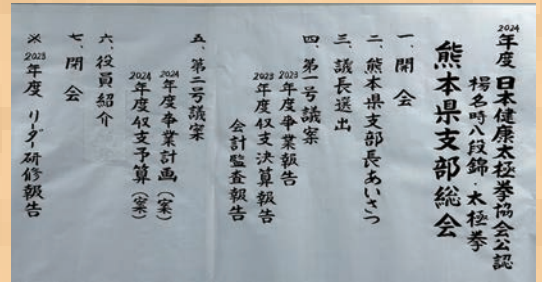 2024年度 日本健康太極拳協会公認
楊名時八段錦・太極拳
熊本県支部総会
一、開会
二、熊本県支部長あいさつ
三、議長選出
四、第一号議案
2023年度事業報告
2023年度収支決算報告
会計監査報告
五、第二号議案
2024年度事業計画(案)
2024年度収支予算(案)
六、役員紹介
七、閉会
※2023年度 リーダー研修報告